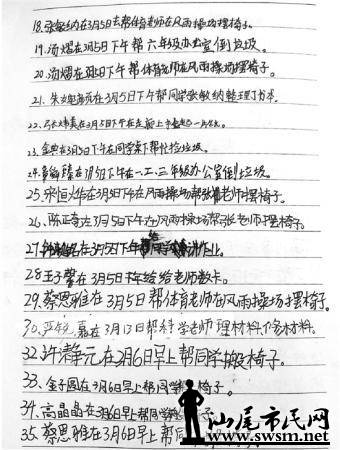 18.张敏纳在3月5日去帮体育老师在风雨操场摆椅子.
19.汤熠在3月5日下午帮六年级办公室倒垃圾.
20.汤熠在3月5日下午帮体育老师在风雨操场摆椅子.
21、朱 在3月5日下午帮同学张敏纳整理了书本.
22、 在3月5日下午在走廊上
23、金典在3月5日下午在同学桌下帮忙捡垃圾.
24. 臻在3月5日下午在一.二.三年级办公室倒垃圾.
25.宋恒烨在3月5日下午在风雨操场帮张老师摆椅子.
26、陈正奇在3月5日下午在风雨操场帮张老师摆椅子.
27. 在3月5日下午帮
28.王子馨在3月5日下午给 老师数卡.
29.蔡思雅在3月5日帮体育老师在风雨操场摆椅子.
30、严 嘉在3月 日帮科学老师理材料、 材料.
32.许瀞元在3月6日早上帮同学搬椅子.
33、金子圆在3月6日早上帮同学搬椅子.
34、高晶晶在3月6日早上帮同学 子
35.蔡思雅在3月6日早上帮同
汕尾市民网
www.swsm.net